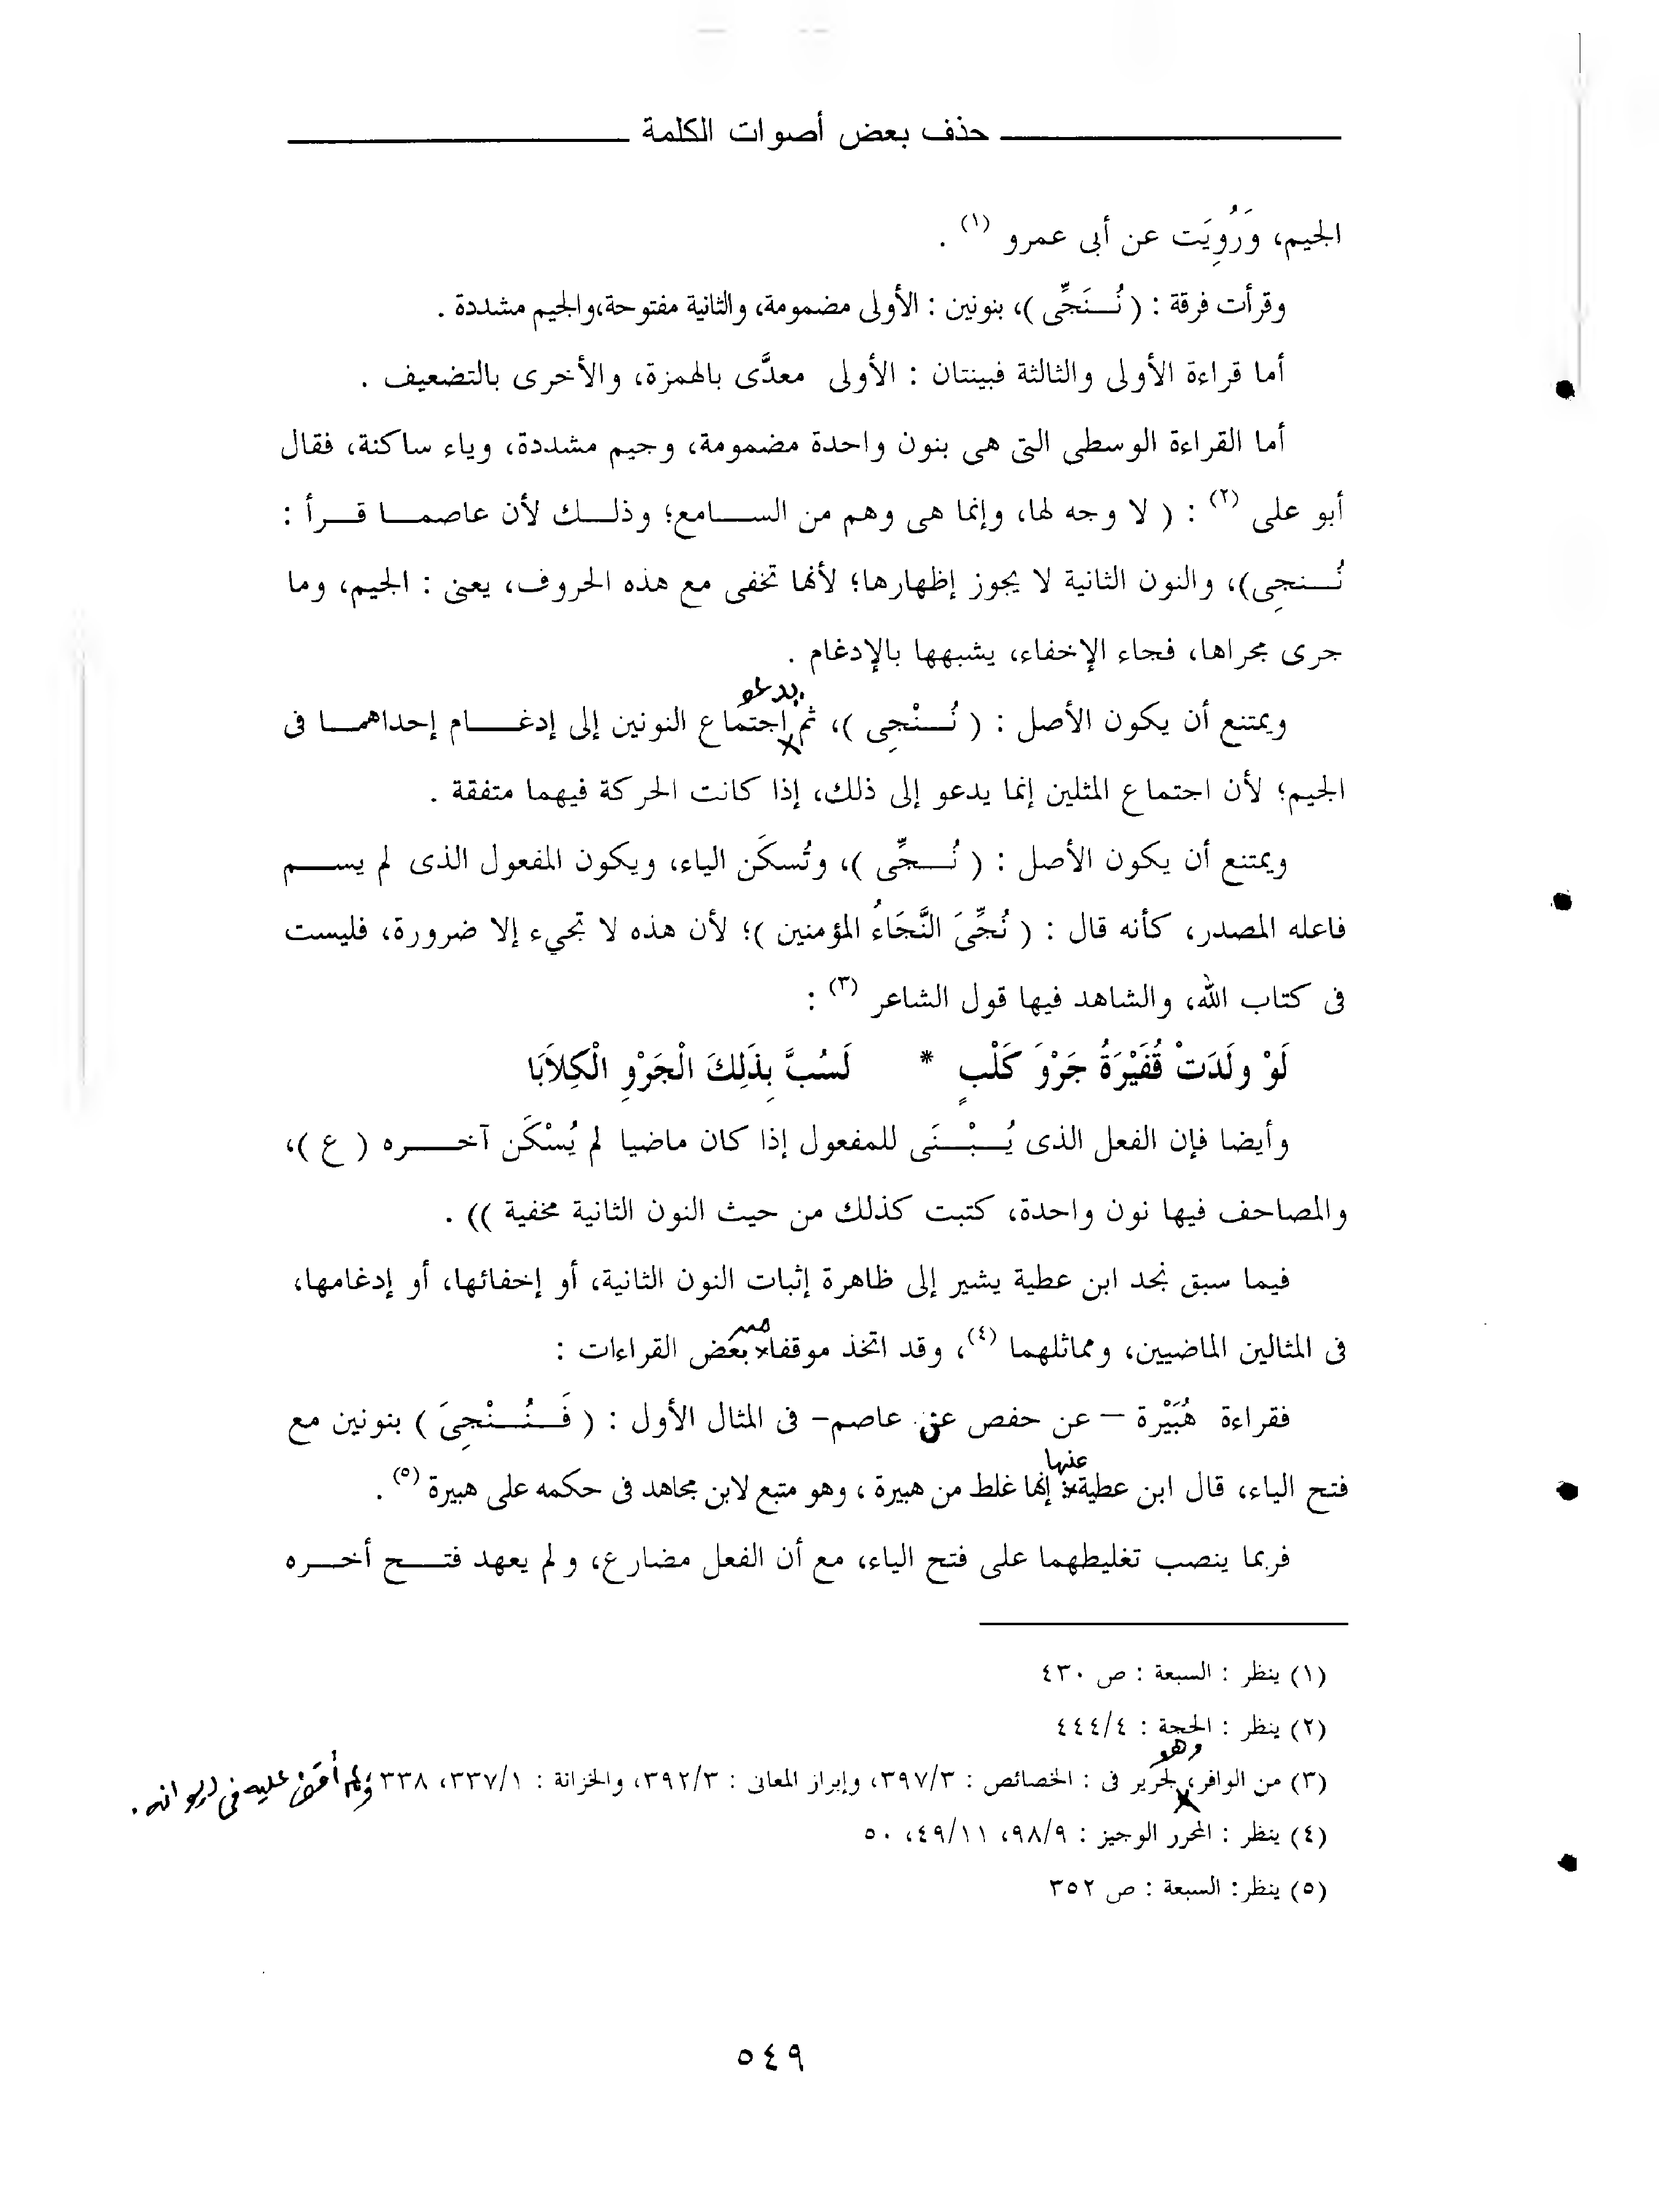 حذف بعض أصوات الكلمة
الجيم، وَرُوِيَت عن أبى عمرو (١) .
وقرأت فرقة : ( نُـنَجِّى )، بنونين : الأولى مضمومة، والثانية مفتوحة،والجيم مشددة .
أما قراءة الأولى والثالثة فبينتان : الأولى معدَّى بالهمزة، والأخرى بالتضعيف .
أما القراءة الوسطى التى هى بنون واحدة مضمومة، وجيم مشددة، وياء ساكنة، فقال
أبو على (٢) : ( لا وجه لها، وإنما هى وهم من السـامع؛ وذلـك لأن عاصمـا قـرأ :
نُـنجِى)، والنون الثانية لا يجوز إظهارها؛ لأنها تخفى مع هذه الحروف، يعنى : الجيم، وما
جرى مجراها، فجاء الإخفاء، يشبهها بالإدغام .
يدعو
ويمتنع أن يكون الأصل : ( نُـنْجِى )، ثم اجتماع النونين إلى إدغـام إحداهمـا فى
الجيم؛ لأن اجتماع المثلين إنما يدعو إلى ذلك، إذا كانت الحركة فيهما متفقة .
ويمتنع أن يكون الأصل : ( نُـجِّى )، وتُسكَن الياء، ويكون المفعول الذى لم يسـم
فاعله المصدر، كأنه قال : ( نُجِّىَ النَّجَاءُ المؤمنين )؛ لأن هذه لا تجيء إلا ضرورة، فليست
فى كتاب الله، والشاهد فيها قول الشاعر (٣) :
لَوْ ولَدَتْ قُفَيْرَةُ جَرْوَ كَلْبٍ * لَسُبَّ بِذَلِكَ الْجَرْوِ الْكِلاَبَا
وأيضا فإن الفعل الذى يُـبْـنَى للمفعول إذا كان ماضيا لم يُسْكَن آخـره ( ع )،
والمصاحف فيها نون واحدة، كتبت كذلك من حيث النون الثانية مخفية )) .
فيما سبق نجد ابن عطية يشير إلى ظاهرة إثبات النون الثانية، أو إخفائها، أو إدغامها،
من
فى المثالين الماضيين، ومماثلهما (٤)، وقد اتخذ موقفا بعض القراءات :
فقراءة هُبَيْرة – عن حفص عن عاصم– فى المثال الأول : ( فَـنُـنْجِىَ ) بنونين مع
عنها
فتح الياء، قال ابن عطية: إنها غلط من هبيرة ، وهو متبع لابن مجاهد فى حكمه على هبيرة (٥) .
فربما ينصب تغليطهما على فتح الياء، مع أن الفعل مضارع، و لم يعهد فتـح أخـره
(١) ينظر : السبعة : ص ٤٣٠
(٢) ينظر : الحجة : ٤٤٤/٤
وهو
(٣) من الوافر، لجرير فى : الخصائص : ٣٩٧/٣، وإبراز المعانى : ٣٩٢/٣، والخزانة : ٣٣٧/١، ٣٣٨ ولم أقف عليه فى ديوانه .
(٤) ينظر : المحرر الوجيز : ٩٨/٩، ٤٩/١١، ٥٠
(٥) ينظر: السبعة : ص ٣٥٢
٥٤٩